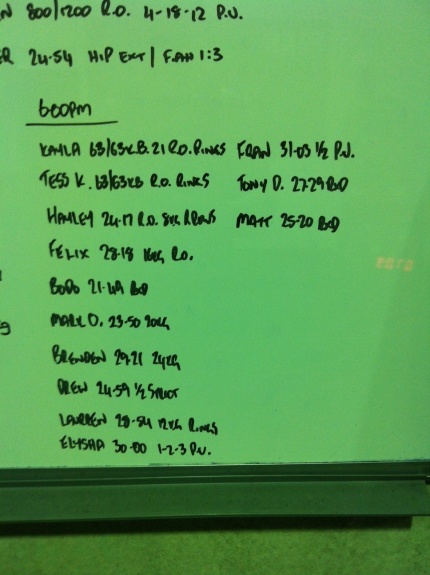 800/1200 R.O. 4-18-12 P.U.
24-54 HIP EXT | FRAN 1:3
600PM
KAYLA 63/63K.B. 21 R.O. RINGS FRAN 31-03 1/2 P.U.
TESS K. 63/63KB R.O. RINGS TONY D. 27-29 BD
HAYLEY 24-17 R.O. 8KG RINGS MATT 25-20 BD
FELIX 28-18 16KG R.O.
BODO 21-49 BD
MARK D. 23-50 20KG
BRENDEN 29-21 24KG
DREW 24-59 1/2 STRICT
LAUREN 28-54 12KG RINGS
ELYSHA 30-00 1-2-3 P.U.